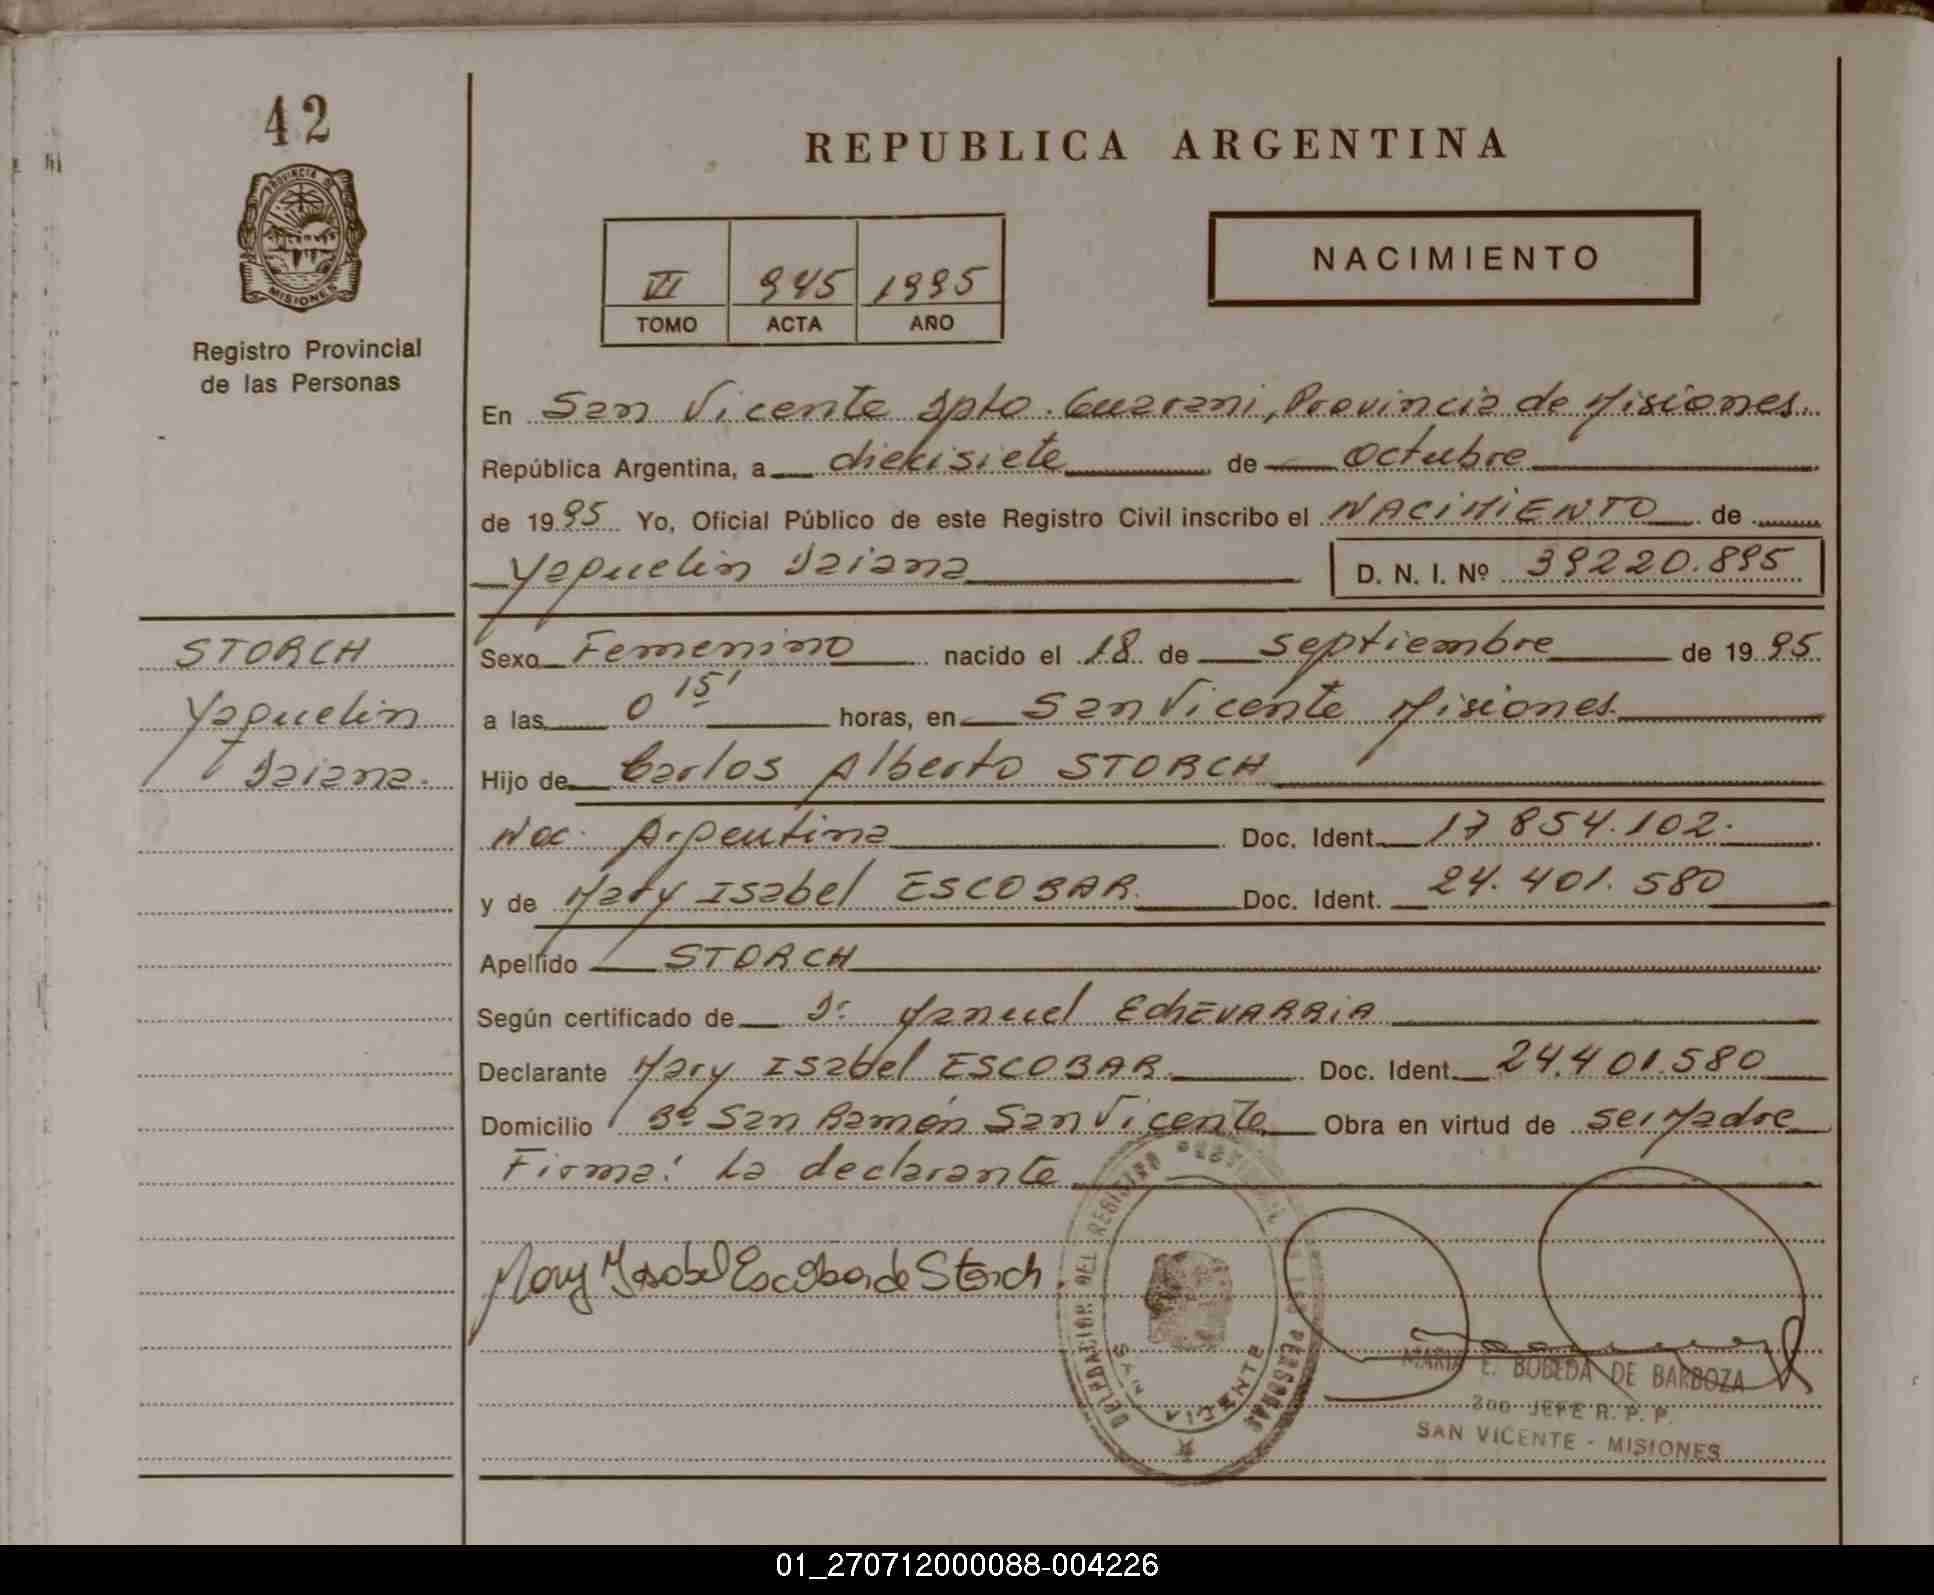 42
PROVINCIA DE
MISIONES
Registro Provincial
de las Personas
STORCH
Yaquelin
Daiana.
REPUBLICA ARGENTINA
VI 945 1995
TOMO ACTA AÑO
NACIMIENTO
En San Vicente Dpto. Guarani, Provincia de Misiones.
República Argentina, a diecisiete de Octubre
de 1995 Yo, Oficial Público de este Registro Civil inscribo el NACIMIENTO de
Yaquelin Daiana D. N. I. Nº 39220.895
Sexo Femenino nacido el 18 de Septiembre de 1995
a las 0 15' horas, en San Vicente Misiones.
Hijo de Carlos Alberto STORCH
Nac. Argentina Doc. Ident. 17854.102.
y de Mary Isabel ESCOBAR. Doc. Ident. 24.401.580
Apellido STORCH
Según certificado de Dr Manuel EchEVARRIA
Declarante Mary Isabel ESCOBAR Doc. Ident. 24.401.580
Domicilio Bº San Ramón San Vicente Obra en virtud de ser Madre
Firma: La declarante
Mary Ysabel Escobar de Storch
DELEGACION DEL REGISTRO PROVINCIAL DE LAS PERSONAS
SAN VICENTE
MARIA E. BOBEDA DE BARBOZA
JEFE R. P. P.
SAN VICENTE - MISIONES
01_270712000088-004226